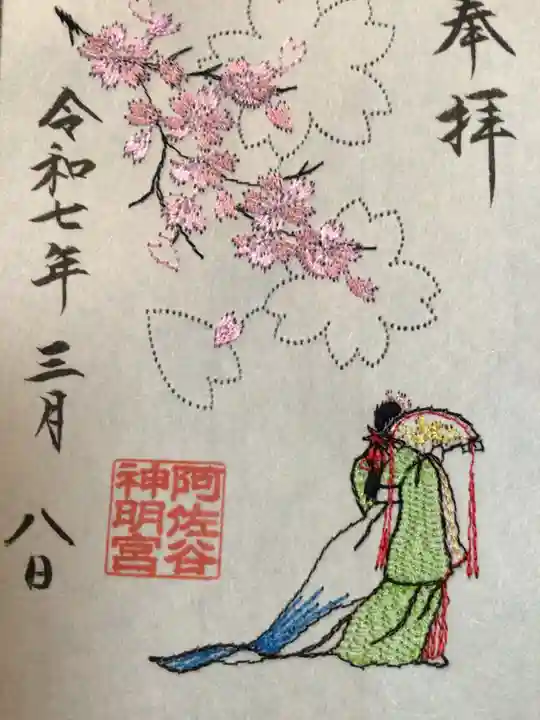 奉拝
阿佐谷
神明宮
令和七年 三月 八日